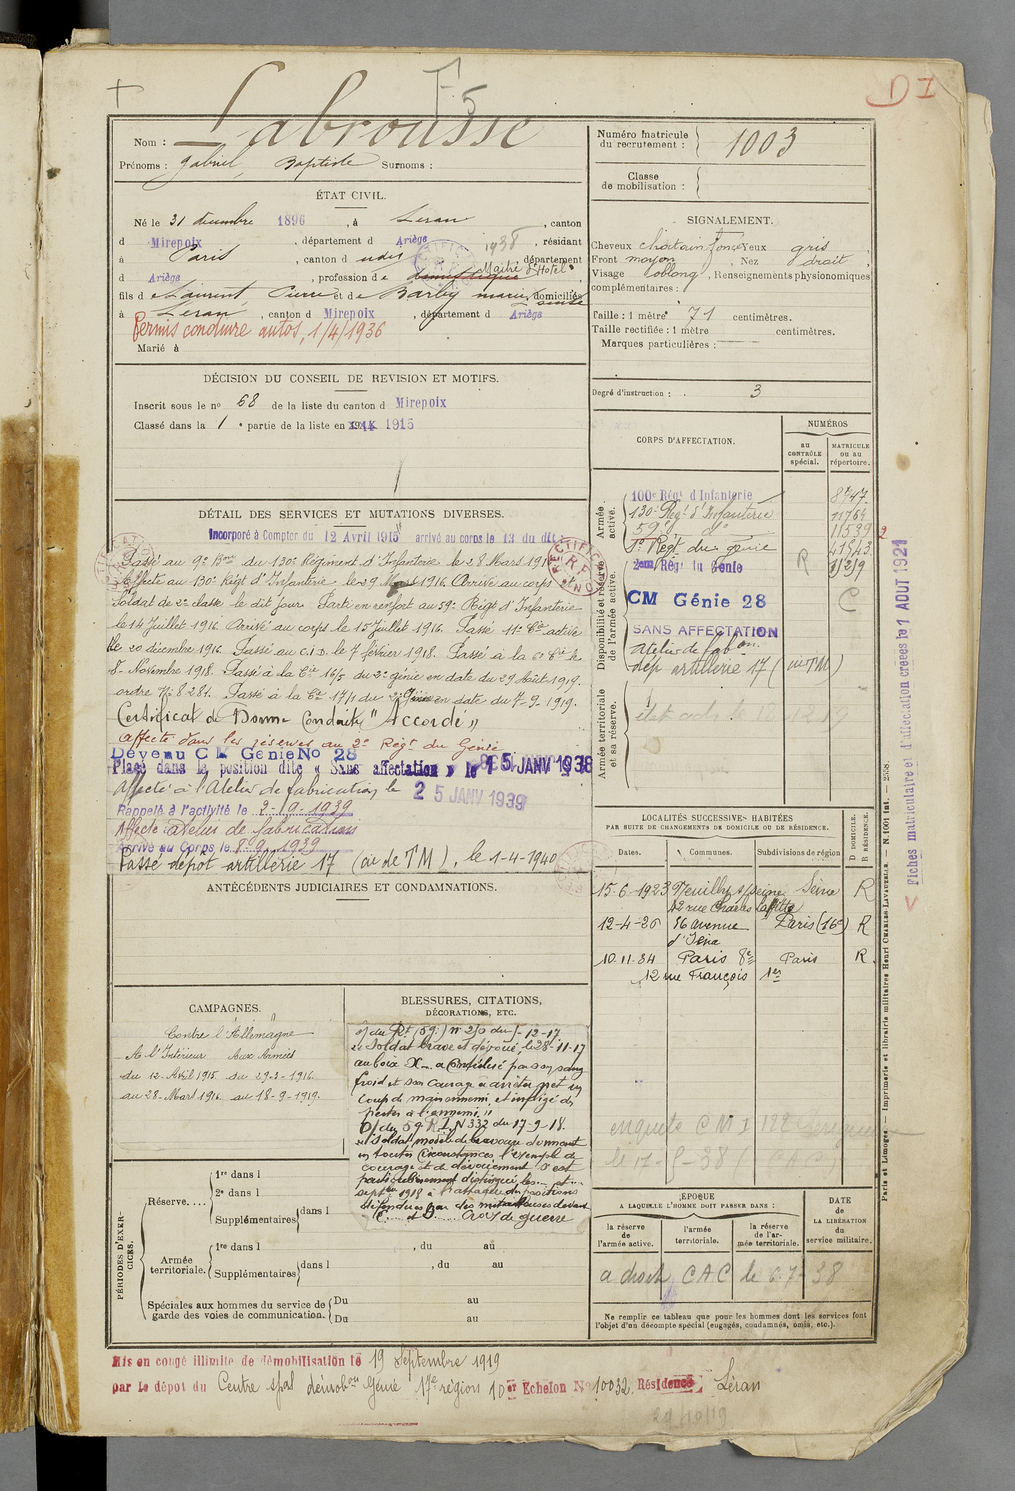 F5
D I
Nom : Labrousse
Prénoms : Gabriel, Baptiste Surnoms :
Numéro matricule du recrutement : 1003
Classe de mobilisation :
ÉTAT CIVIL.
Né le 31 décembre 1896, à Leran, canton
d Mirepoix, département d Ariège, résidant
à Paris, canton d udit, département
d Ariège, profession de domestique Maître d'Hotel 1938
fils de Laurent, Pierre et de Barby marie Louise domiciliés
à Léran, canton d Mirepoix, département d Ariège
Permis conduire autos, 1/4/1936
Marié à
SIGNALEMENT.
Cheveux châtain foncé Yeux gris
Front moyen, Nez droit
Visage oblong, Renseignements physionomiques
complémentaires :
Taille : 1 mètre 71 centimètres.
Taille rectifiée : 1 mètre centimètres.
Marques particulières :
Degré d'instruction : 3
DÉCISION DU CONSEIL DE REVISION ET MOTIFS.
Inscrit sous le nº 68 de la liste du canton d Mirepoix
Classé dans la 1e partie de la liste en 1915
DÉTAIL DES SERVICES ET MUTATIONS DIVERSES.
Incorporé à Compter du 12 Avril 1915 arrivé au corps le 13 du dit
Passé au 9e Bon du 130e Régiment d'Infanterie le 28 Mars 1916
Affecté au 130e Régt d'Infanterie le 29 Mars 1916 Arrivé au corps et
Soldat de 2e classe le dit jour. Parti en renfort au 59e Régt d'Infanterie
le 14 Juillet 1916. Arrivé au corps le 15 Juillet 1916. Passé 11e Cie active
le 20 décembre 1916. Passé au C.I.D. le 7 février 1918. Passé à la 6e Cie le
8 Novembre 1918. Passé à la Cie 16/5 du 2e génie en date du 29 Août 1919.
ordre No 8281. Passé à la Cie 17/1 du 2e Génie en date du 7-9-1919.
Certificat de Bonne Conduite "Accordé"
Affecté dans les réserves au 2e Régt du Génie
Devenu C M Génie No 28
Placé dans la position dite « Sans affectation » le 15 JANV 1938
Affecté à l'Atelier de fabrication le 25 JANV 1939
Rappelé à l'activité le 2-9-1939
Affecté atelier de fabrications
Arrivé au Corps le 8-9-1939
Passé dépot artillerie 17 (au de TM), le 1-4-1940
CORPS D'AFFECTATION.
NUMÉROS
au CONTRÔLE spécial.
MATRICULE ou au répertoire.
Armée active.
100e Régt d'Infanterie 8747
130e Régt d'Infanterie 11764
59e do 11539
2e Régt du génie 41543
Disponibilité et réserve de l'armée active.
2eme Rég. du Génie R
CM Génie 28
SANS AFFECTATION
atelier de fabon
dep artillerie 17 (au TM)
Armée territoriale et sa réserve.
Fiches matriculaire et d'affectation créées le 1 AOUT 1921
ANTÉCÉDENTS JUDICIAIRES ET CONDAMNATIONS.
LOCALITÉS SUCCESSIVES HABITÉES
PAR SUITE DE CHANGEMENTS DE DOMICILE OU DE RÉSIDENCE.
Dates. Communes. Subdivisions de région D DOMICILE. R RÉSIDENCE.
15-6-1923 Neuilly s/Seine Seine R
12 rue Charles Laffitte
12-4-26 56 avenue Paris (16e) R
d'Iéna
10.11.34 Paris 8e Paris R.
12 rue François 1er
enquete C M I
CAMPAGNES.
Contre l'Allemagne
A l'Intérieur Aux Armées
du 12 Avril 1915 du 29-3-1916
au 28 Mars 1916 au 18-9-1919.
BLESSURES, CITATIONS,
DÉCORATIONS, ETC.
O/ du Rt (59e) no 270 du -12-17
"Soldat brave et dévoué, le 28-11-17
au bois X a contribué par son sang
froid et son courage à arrêter net un
coup de main ennemi et infligé des
pertes à l'ennemi."
O/ du 59 R.I. N 332 du 17-9-18.
"Soldat modèle de bravoure donnant
en toutes circonstances l'exemple du
courage et de dévouement s'est
particulièrement distingué les
septbre 1918 à l'attaque des positions
défendues par des mitrailleuses
Croix de guerre
PÉRIODES D'EXERCICES.
Réserve.... 1re dans l
2e dans l
Supplémentaires dans l
Armée territoriale. 1re dans l , du au
Supplémentaires dans l , du au
Spéciales aux hommes du service de garde des voies de communication. Du au
Du au
ÉPOQUE
A LAQUELLE L'HOMME DOIT PASSER DANS :
la réserve de l'armée active. l'armée territoriale. la réserve de l'armée territoriale.
DATE DE LA LIBÉRATION du service militaire.
a droit CAC le 6-7-38
Ne remplir ce tableau que pour les hommes dont les services font
l'objet d'un décompte spécial (engagés, condamnés, omis, etc.).
Paris et Limoges. — Imprimerie et librairie militaires Henri CHARLES-LAVAUZELLE. — N. 1001 Int. — 2558.
Mis en congé illimité de démobilisation le 19 Septembre 1919
par Le dépot du Centre spal démobon Génie 17e région 10 er Echelon No 10032 Résidence Léran